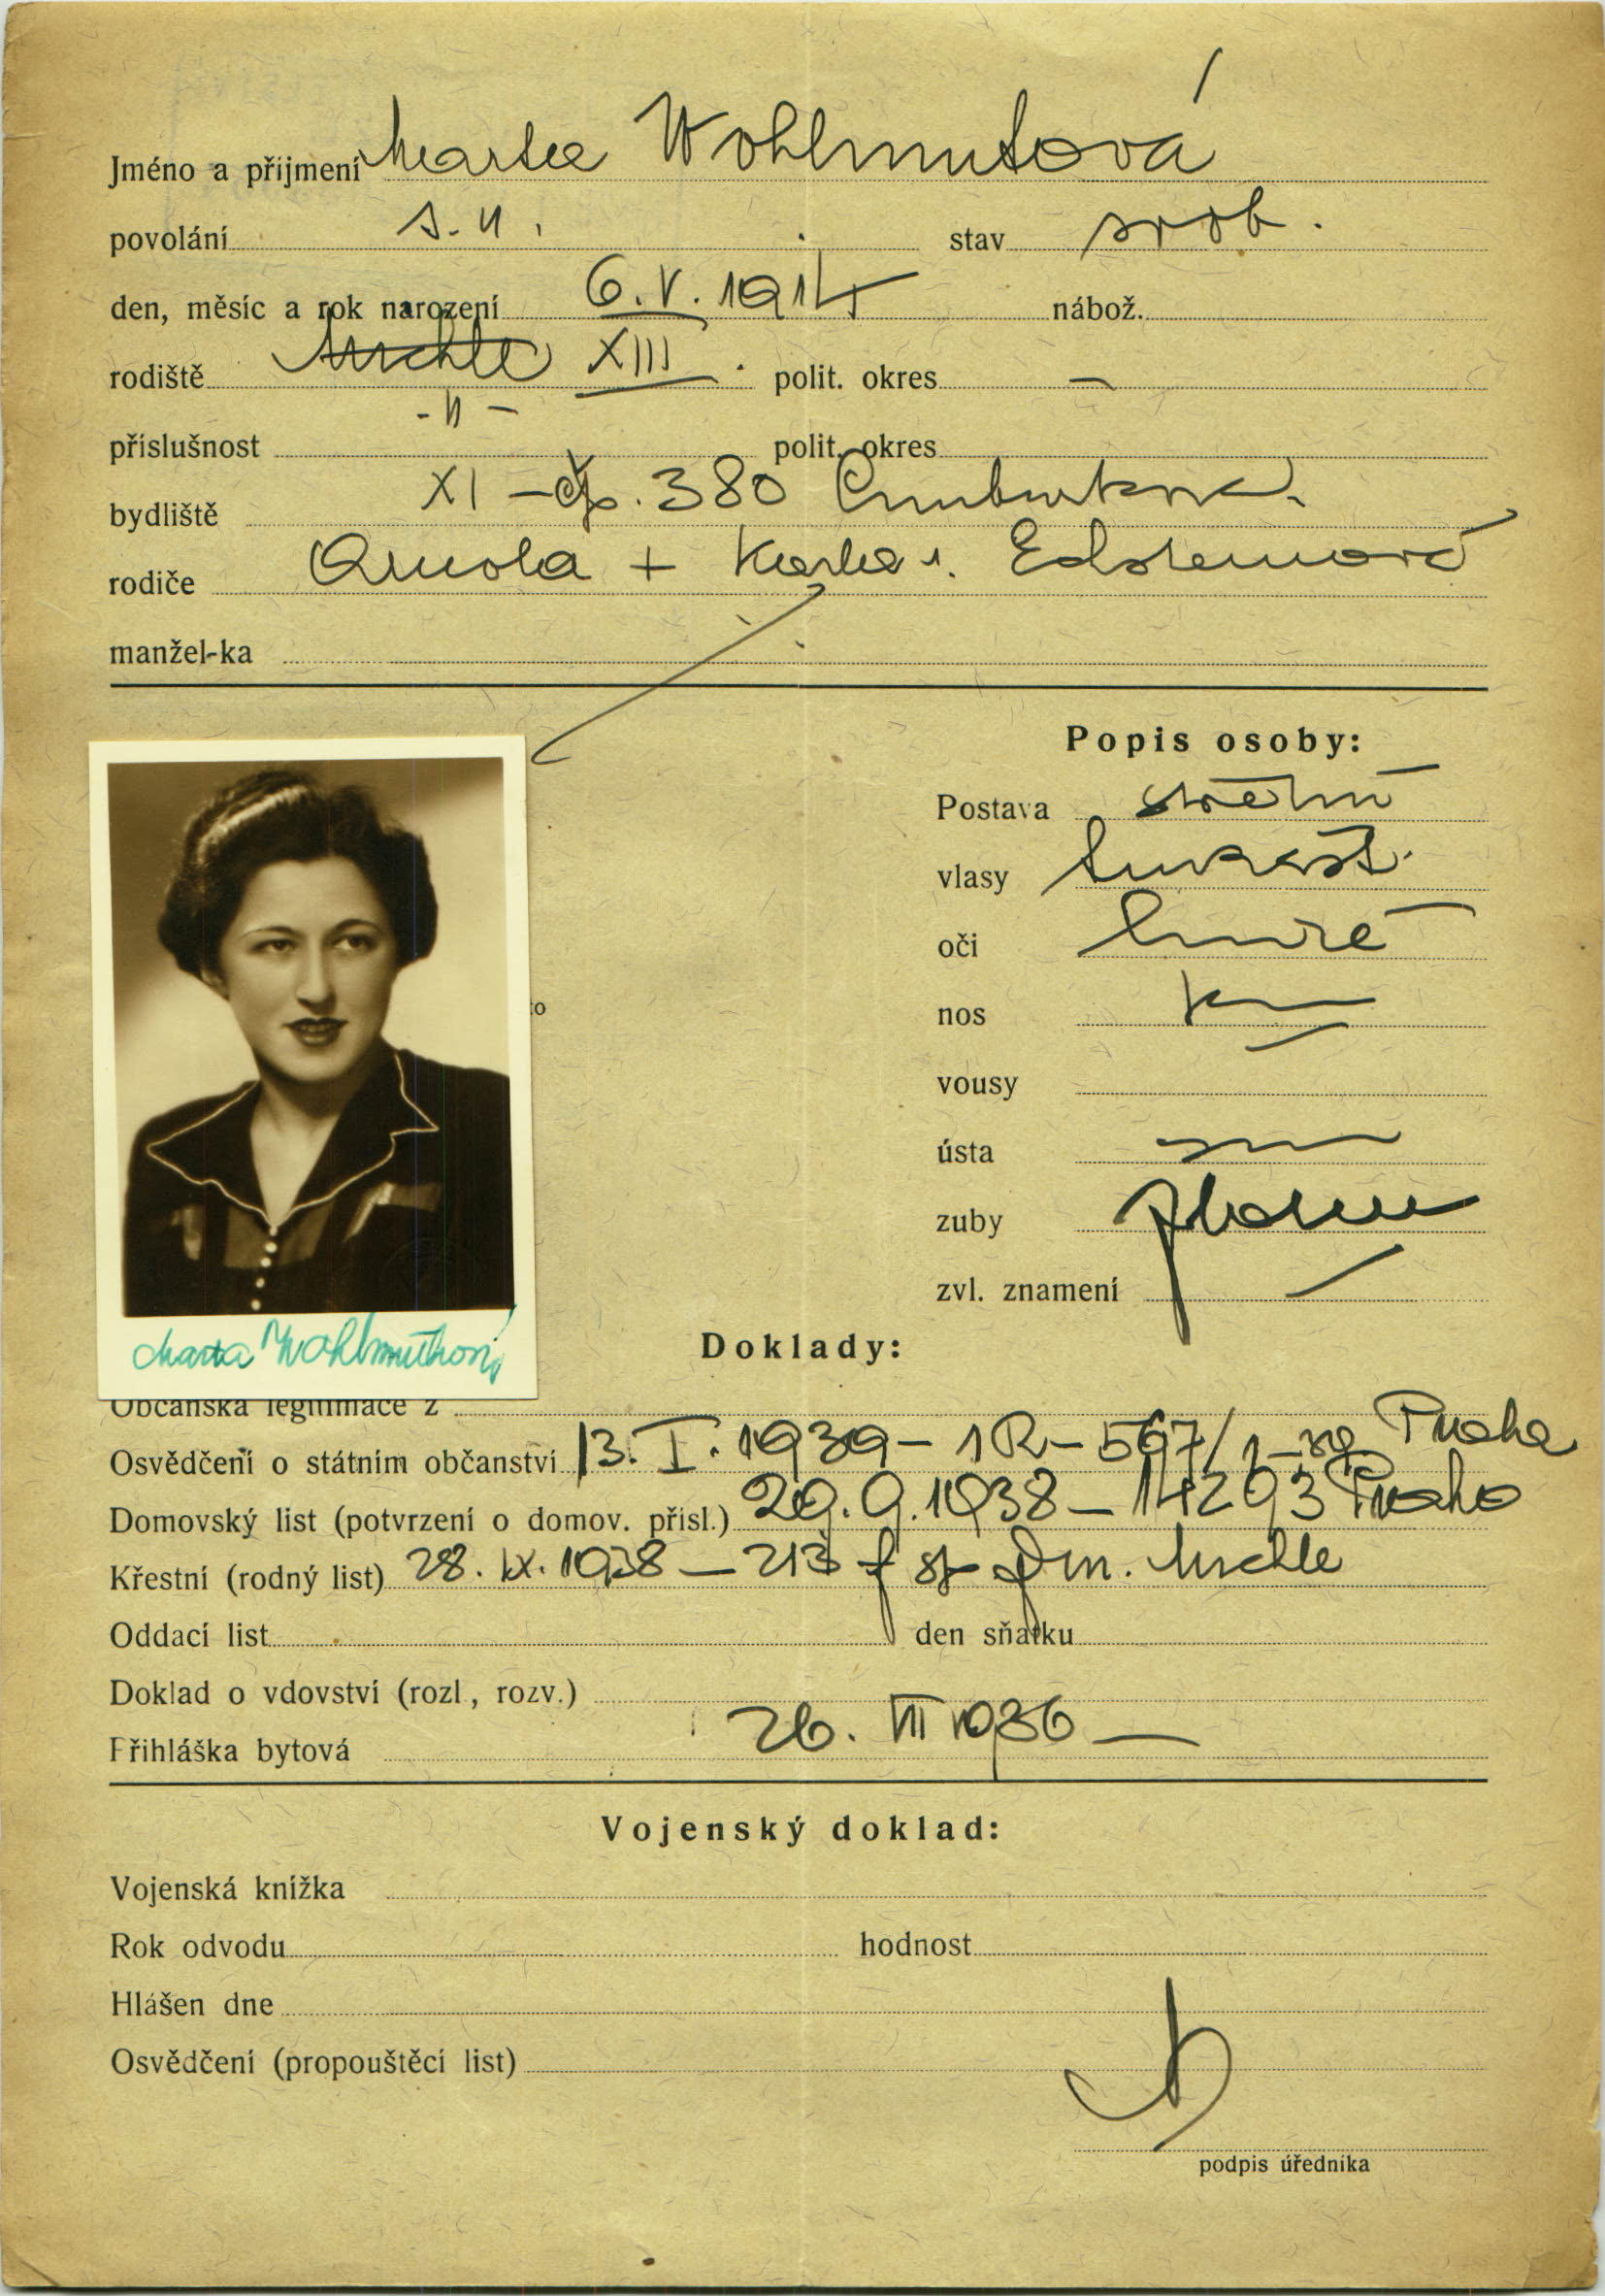 Jméno a přijmení Marta Wohlmutová
povolání s. u. stav svob.
den, měsíc a rok narození 6. V. 1914 nábož.
rodiště Michle XIII. polit. okres —
příslušnost -"- polit. okres
bydliště XI - čp. 380
rodiče + Edsteinová
manžel-ka
Popis osoby:
Postava střední
vlasy
oči
nos
vousy
ústa
zuby
zvl. znamení
to
Marta Wohlmuthová
Doklady:
Občanská legitimace z
Osvědčení o státním občanství 13. I. 1939 - 1R - 597/1-39 Praha
Domovský list (potvrzení o domov. přísl.) 29. 9. 1938 - 14293 Praha
Křestní (rodný list) 28. IX. 1938 - 213 Michle
Oddací list den sňatku
Doklad o vdovství (rozl, rozv.)
Přihláška bytová 26. VII 1936 —
Vojenský doklad:
Vojenská knížka
Rok odvodu hodnost
Hlášen dne
Osvědčení (propouštěcí list)
podpis úředníka